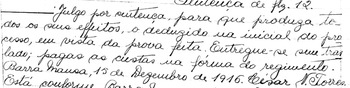 Sentença de fls. 12.
"Julgo por sentença, para que produza to-
dos os seus effeitos, o deduzido na inicial do pro
cesso, em vista da prova feita. Entregue-se sem tras
lado; pagas as custas na forma do regimento.
Barra Mansa, 13 de Dezembro de 1916. Cesar N. Torres
Está conforme